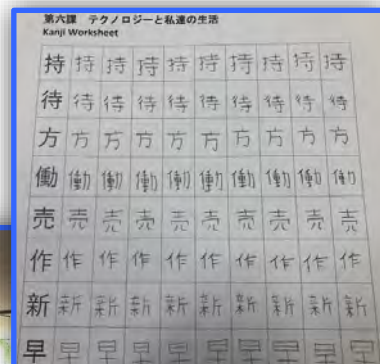 第六課 テクノロジーと私達の生活
Kanji Worksheet
持 持 持 持 持 持 持 持 持 持
待 待 待 待 待 待 待 待 待 待
方 方 方 方 方 方 方 方 方 方
働 働 働 働 働 働 働 働 働 働
売 売 売 売 売 売 売 売 売 売
作 作 作 作 作 作 作 作 作 作
新 新 新 新 新 新 新 新 新 新
早 早 早 早 早 早 早 早 早 早